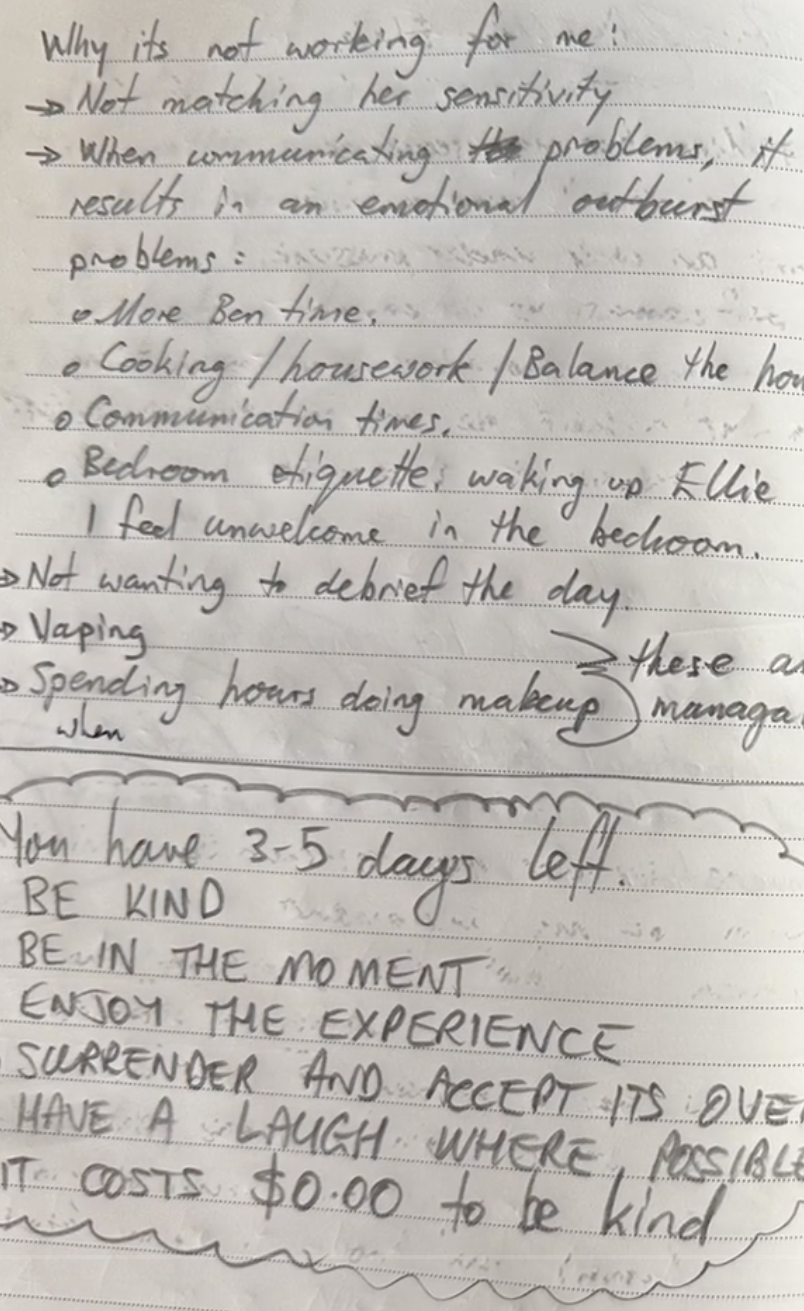 Why its not working for me:
→ Not matching her sensitivity
→ When communicating problems, it
results in an emotional outburst
problems:
o More Ben time.
o Cooking / housework / Balance the hou
o Communication times.
o Bedroom etiquette: waking up Ellie
I feel unwelcome in the bedroom.
→ Not wanting to debrief the day.
→ Vaping
these a
→ Spending hours doing makeup
managa
when
You have 3-5 days left.
BE KIND
BE IN THE MOMENT
ENJOY THE EXPERIENCE
SURRENDER AND ACCEPT ITS OVE
HAVE A LAUGH WHERE POSSIBLE
IT COSTS $0.00 to be kind